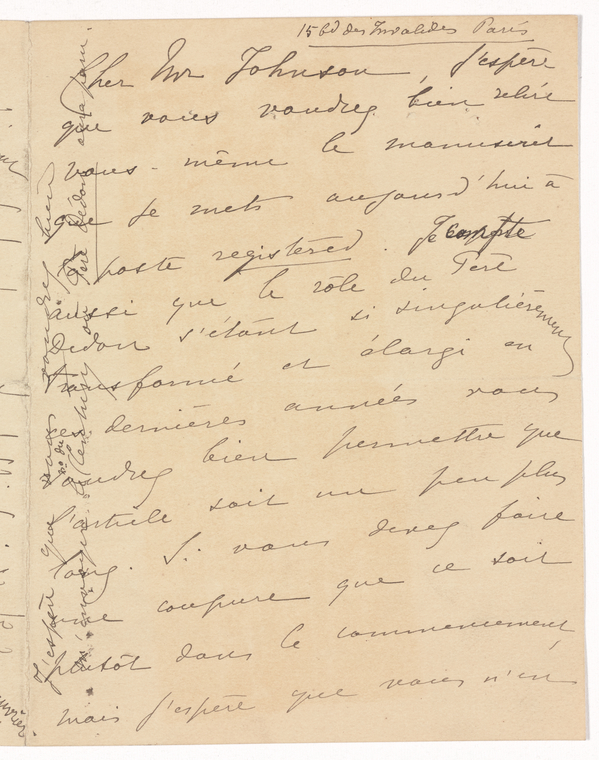 15 bd des Invalides Paris
Cher Mr Johnson, J'espère
que vous voudrez bien relire
vous-même le manuscrit
que je mets aujourd'hui à
la poste registered. Je compte
aussi que le rôle du Père
Didon s'étant si singulièrement
transformé et élargi en
ces dernières années vous
voudrez bien permettre que
l'article soit un peu plus
long. Si vous devez faire
une coupure que ce soit
plutôt dans le commencement
mais j'espère que vous n'en
J'espère que vous voudrez bien
m'envoyer le Century où Père Didon aura paru
no du